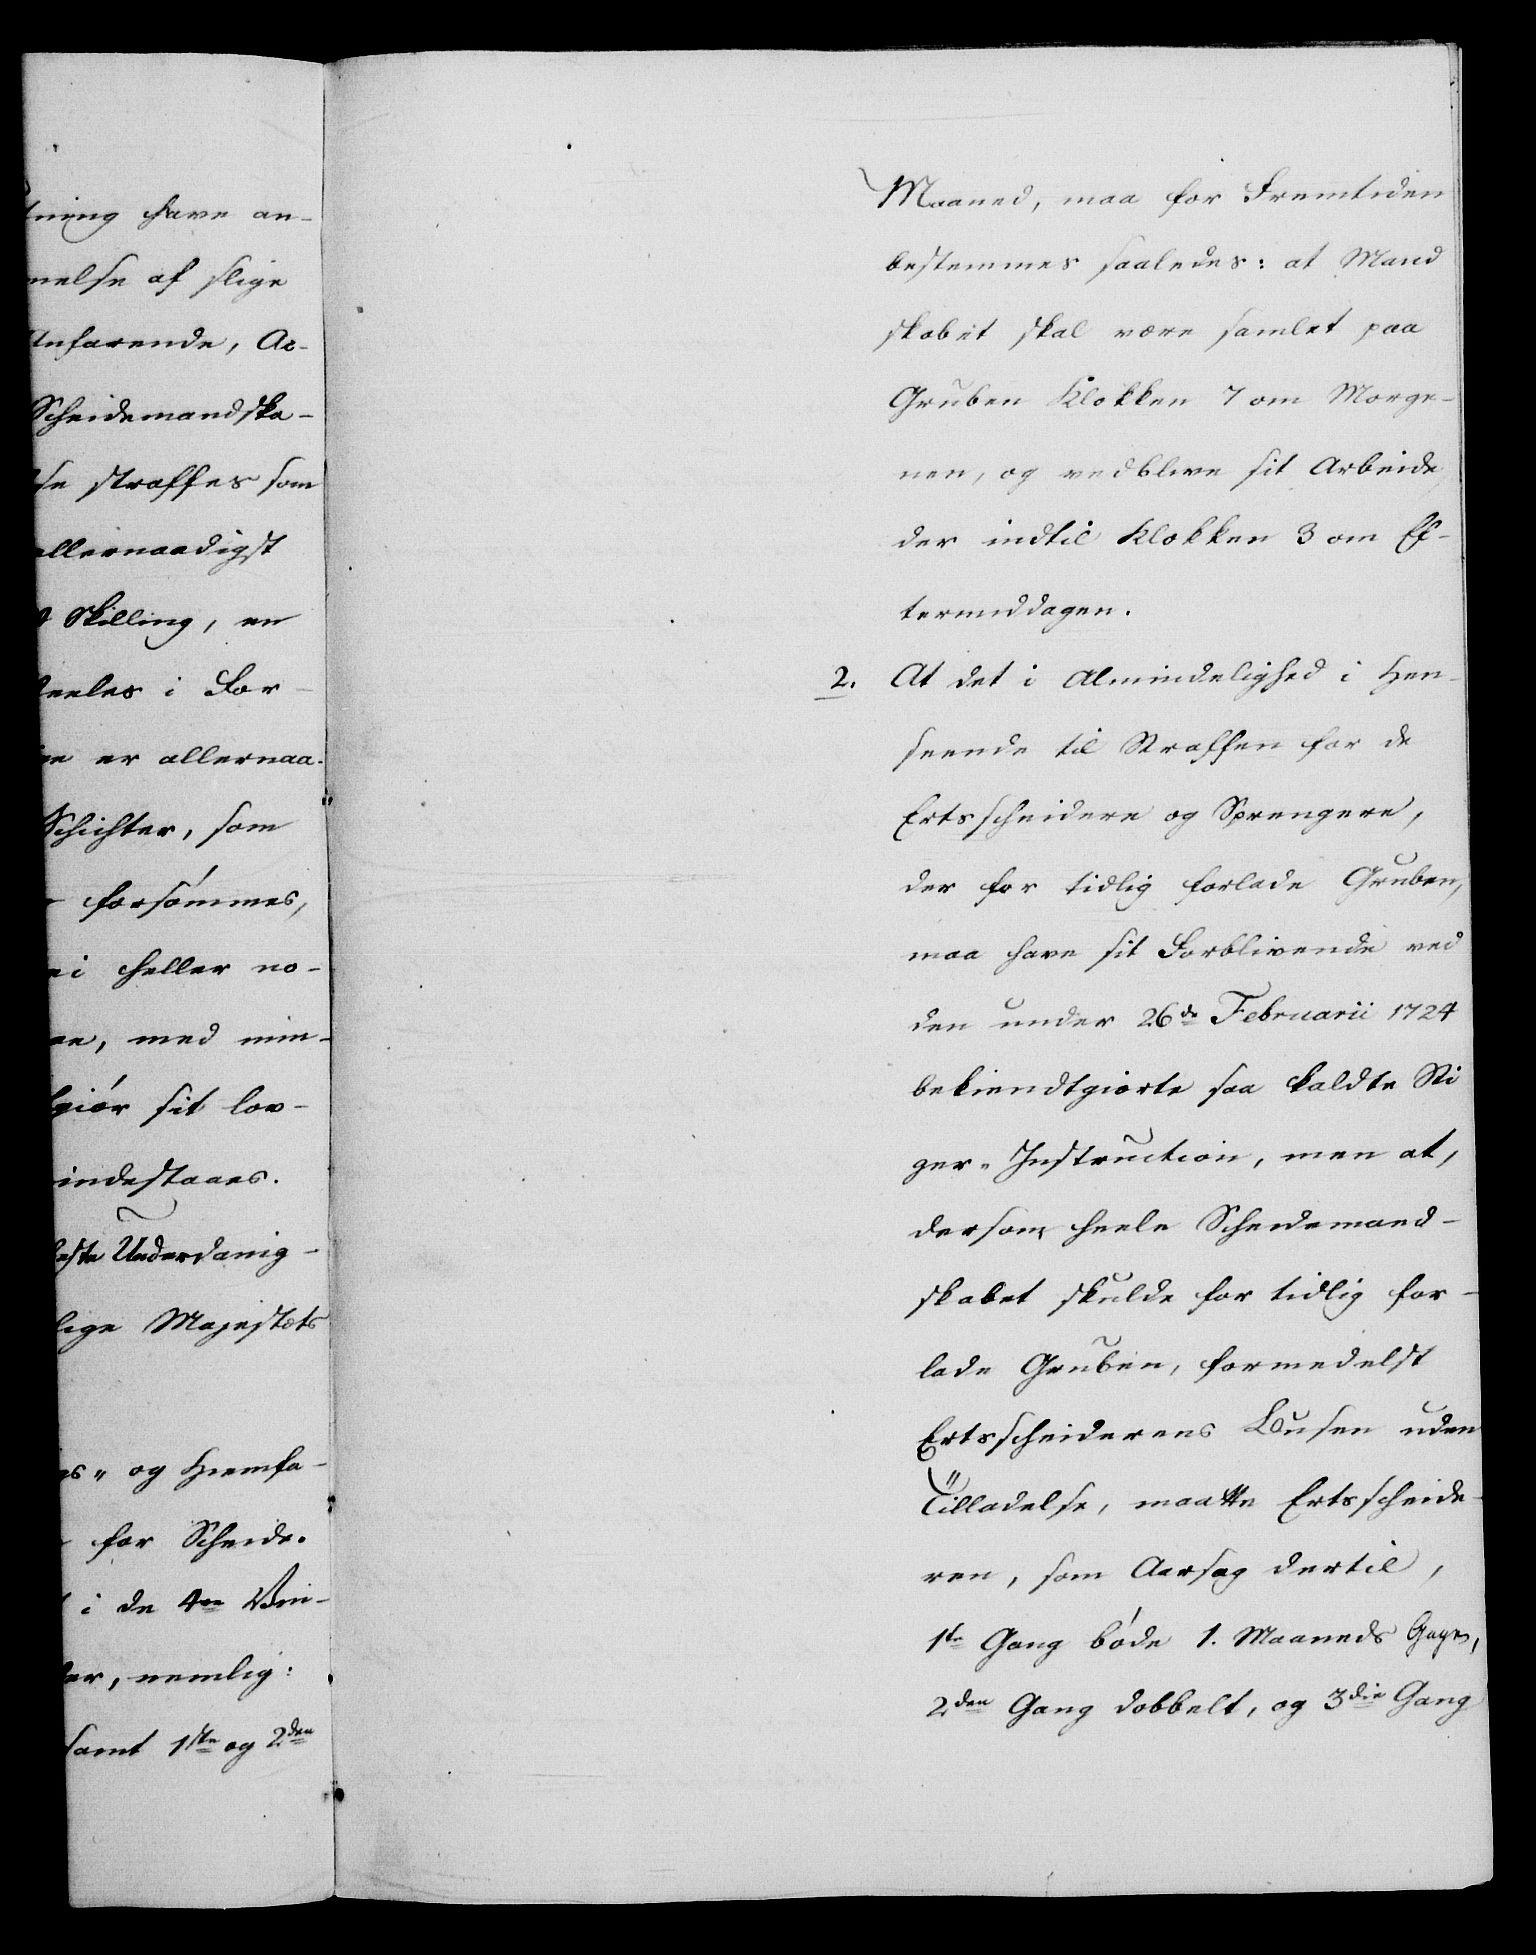 tning have an-
melse af slige
Anfarende, Ar-
Scheidemandska-
se straffes som
allernaadigst
Skilling, en
deeles i For-
ge er allernaa-
Schichter, som
forsømmes,
ei heller no-
ne, med min-
giör sit lov-
indestaaes.
este Underdanig-
lige Majestets
gs- og Hiemfa-
for Scheide-
i de 4re Vin-
der, nemlig:
samt 1ste og 2den
Maaned, maa for Fremtiden
bestemmes saaledes: at Mand
skabet skal være samlet paa
Gruben Klokken 7 om Morge-
nen, og vedblive sit Arbeide
der indtil Klokken 3 om Ef-
termiddagen.
2. At det i Almindelighed i Hen-
seende til Straffen for de
Ertsscheidere og Sprengere,
der for tidlig forlade Gruben,
maa have sit Forblivende ved
den under 26de Februarii 1724
bekiendtgiorte saa kaldte Sti
ger-Instruction, men at,
dersom heele Scheidemand-
skabet skulde for tidlig for-
lade Gruben, formedelst
Ertsscheiderens Løusen uden
Tilladelse, maatte Ertsscheide-
ren, som Aarsag dertil,
1ste Gang bøde 1. Maaneds Gage,
2den Gang dobbelt, og 3die Gang